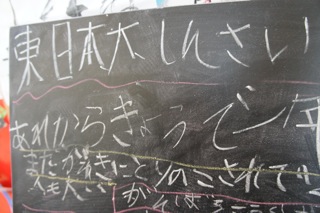 東日本大しんさい
あれからきょうで一年
まだがれきにとりのこされてい
人も大
がんば